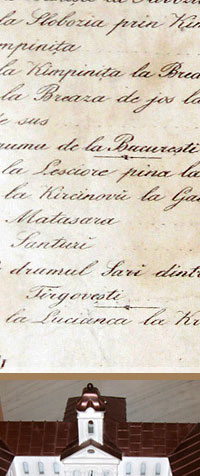 la Slobozia prin
mpinița
la Kimpinița la Brea
la Breaza de jos la
de sus
de la București
la Lesciore pina la
la Kircinovii la Ga
Matasara
Santuri
drumul Sari dint
Tîrgovești
la Lucianca la